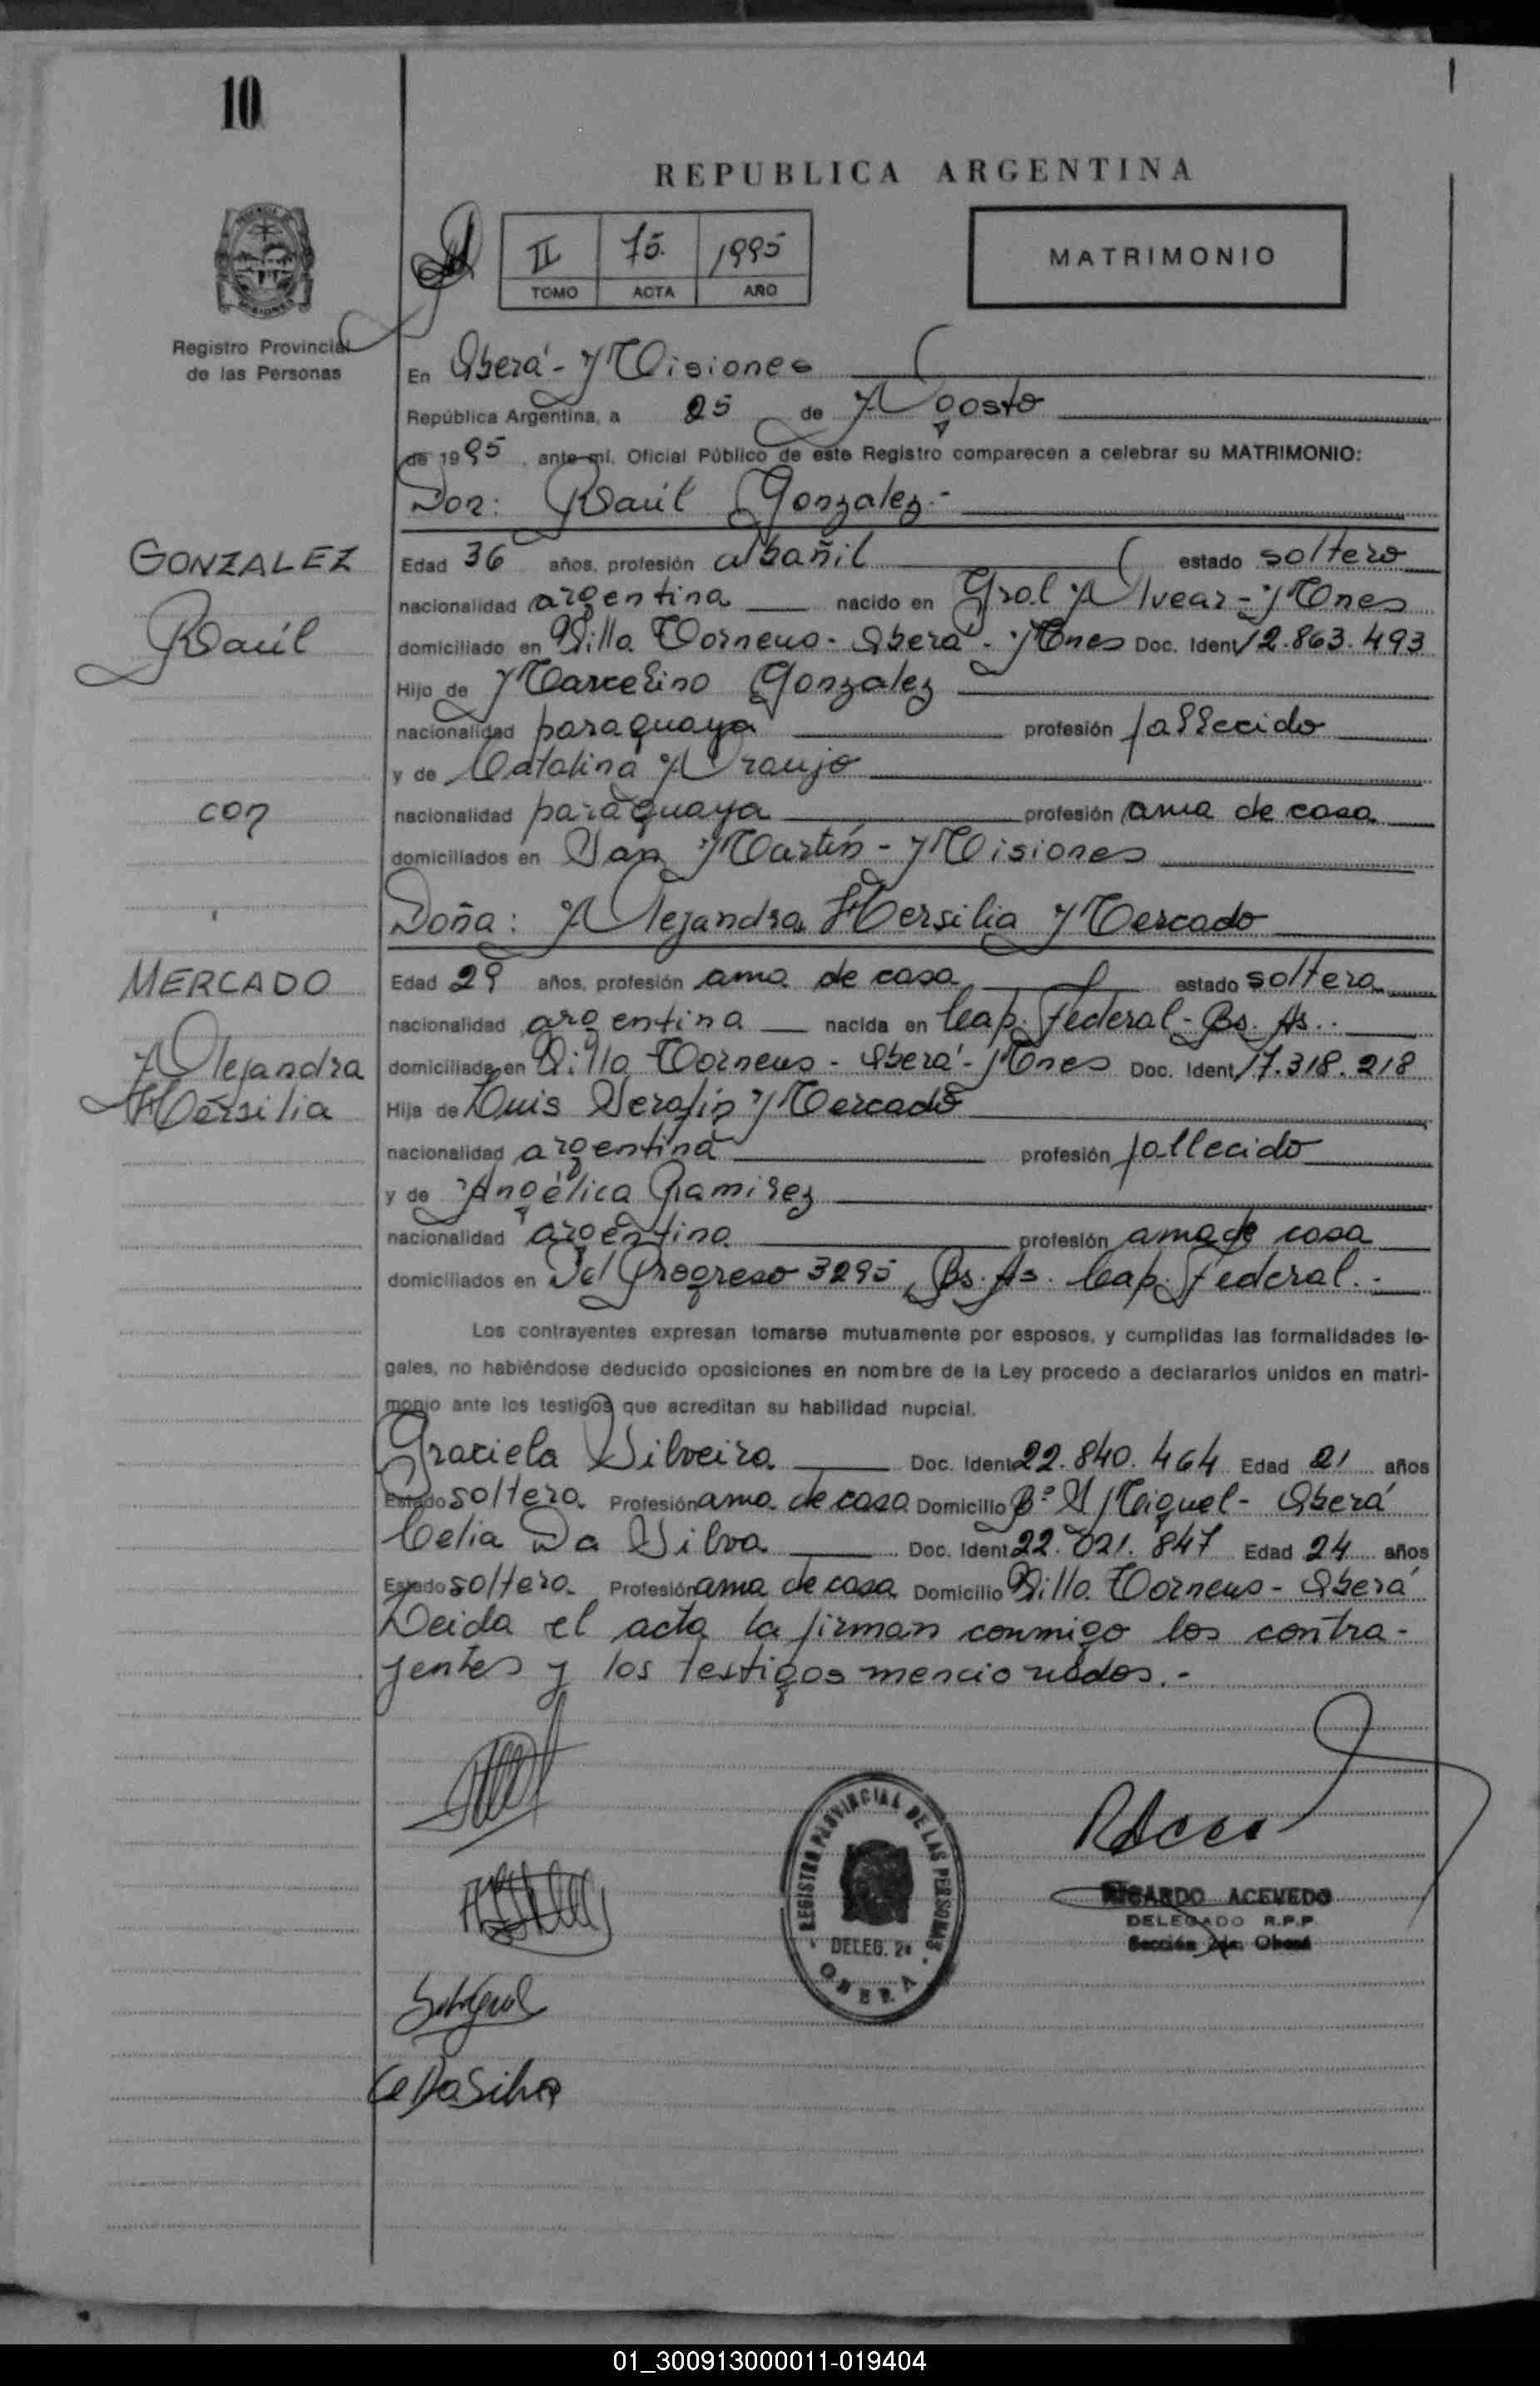 10
REPUBLICA ARGENTINA
II 75. 1995
TOMO ACTA AÑO
MATRIMONIO
Registro Provincial
de las Personas
En Oberá - Misiones
República Argentina, a 25 de Agosto
de 1995, ante mí, Oficial Público de este Registro comparecen a celebrar su MATRIMONIO:
Don: Raúl Gonzalez.-
GONZALEZ
Raúl
con
MERCADO
Alejandra
Hersilia
Edad 36 años, profesión albañil estado soltero
nacionalidad argentina nacido en Gral Alvear - Mnes
domiciliado en Villa Torneus - Oberá - Mnes Doc. Ident 12.863.493
Hijo de Marcelino Gonzalez
nacionalidad paraguaya profesión fallecido
y de Catalina Araujo
nacionalidad paraguaya profesión ama de casa
domiciliados en San Martín - Misiones
Doña: Alejandra Hersilia Mercado
Edad 29 años, profesión ama de casa estado soltera
nacionalidad argentina nacida en Cap. Federal - Bs. As..-
domiciliada en Villa Torneus - Oberá - Mnes Doc. Ident 17.318.218
Hija de Luis Serafín Mercado
nacionalidad argentina profesión fallecido
y de Angélica Ramirez
nacionalidad argentina profesión ama de casa
domiciliados en Del Progreso 3295, Bs. As. Cap. Federal.-
Los contrayentes expresan tomarse mutuamente por esposos, y cumplidas las formalidades le-
gales, no habiéndose deducido oposiciones en nombre de la Ley procedo a declararlos unidos en matri-
monio ante los testigos que acreditan su habilidad nupcial.
Graciela Silveira Doc. Ident 22.840.464 Edad 21 años
Estado soltera Profesión ama de casa Domicilio Bº S Miguel - Oberá
Celia Da Silva Doc. Ident 22.021.847 Edad 24 años
Estado soltera Profesión ama de casa Domicilio Villa Torneus - Oberá
Leida el acta la firman conmigo los contra-
yentes y los testigos mencionados.-
REGISTRO PROVINCIAL DE LAS PERSONAS
DELEG. 2ª
OBERA
RICARDO ACEVEDO
DELEGADO R.P.P.
Sección 2da. Oberá
Ce DaSilva
01_300913000011-019404